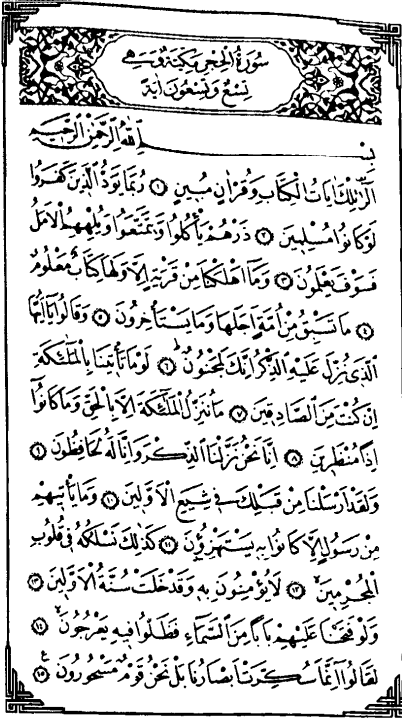 سُورَةُ الْحِجْرِ مَكِّيَّةٌ وَهِيَ
تِسْعٌ وَتِسْعُونَ اٰيَةً
بِسْمِ اللّٰهِ الرَّحْمٰنِ الرَّحِيمِ
الٓرٰ تِلْكَ اٰيَاتُ الْكِتَابِ وَقُرْاٰنٍ مُبِينٍ ﴿١﴾ رُبَمَا يَوَدُّ الَّذِينَ كَفَرُوا
لَوْ كَانُوا مُسْلِمِينَ ﴿٢﴾ ذَرْهُمْ يَأْكُلُوا وَيَتَمَتَّعُوا وَيُلْهِهِمُ الْاَمَلُ
فَسَوْفَ يَعْلَمُونَ ﴿٣﴾ وَمَا اَهْلَكْنَا مِنْ قَرْيَةٍ اِلَّا وَلَهَا كِتَابٌ مَعْلُومٌ
﴿٤﴾ مَا تَسْبِقُ مِنْ اُمَّةٍ اَجَلَهَا وَمَا يَسْتَأْخِرُونَ ﴿٥﴾ وَقَالُوا يَا اَيُّهَا
الَّذِى نُزِّلَ عَلَيْهِ الذِّكْرُ اِنَّكَ لَمَجْنُونٌ ﴿٦﴾ لَوْ مَا تَأْتِينَا بِالْمَلٰٓئِكَةِ
اِنْ كُنْتَ مِنَ الصَّادِقِينَ ﴿٧﴾ مَا نُنَزِّلُ الْمَلٰٓئِكَةَ اِلَّا بِالْحَقِّ وَمَا كَانُوا
اِذًا مُنْظَرِينَ ﴿٨﴾ اِنَّا نَحْنُ نَزَّلْنَا الذِّكْرَ وَاِنَّا لَهُ لَحَافِظُونَ ﴿٩﴾
وَلَقَدْ اَرْسَلْنَا مِنْ قَبْلِكَ فِى شِيَعِ الْاَوَّلِينَ ﴿١٠﴾ وَمَا يَأْتِيهِمْ
مِنْ رَسُولٍ اِلَّا كَانُوا بِهِ يَسْتَهْزِؤُنَ ﴿١١﴾ كَذٰلِكَ نَسْلُكُهُ فِى قُلُوبِ
الْمُجْرِمِينَ ﴿١٢﴾ لَا يُؤْمِنُونَ بِهِ وَقَدْ خَلَتْ سُنَّةُ الْاَوَّلِينَ ﴿١٣﴾
وَلَوْ فَتَحْنَا عَلَيْهِمْ بَابًا مِنَ السَّمَاءِ فَظَلُّوا فِيهِ يَعْرُجُونَ ﴿١٤﴾
لَقَالُوا اِنَّمَا سُكِّرَتْ اَبْصَارُنَا بَلْ نَحْنُ قَوْمٌ مَسْحُورُونَ ﴿١٥﴾ ع